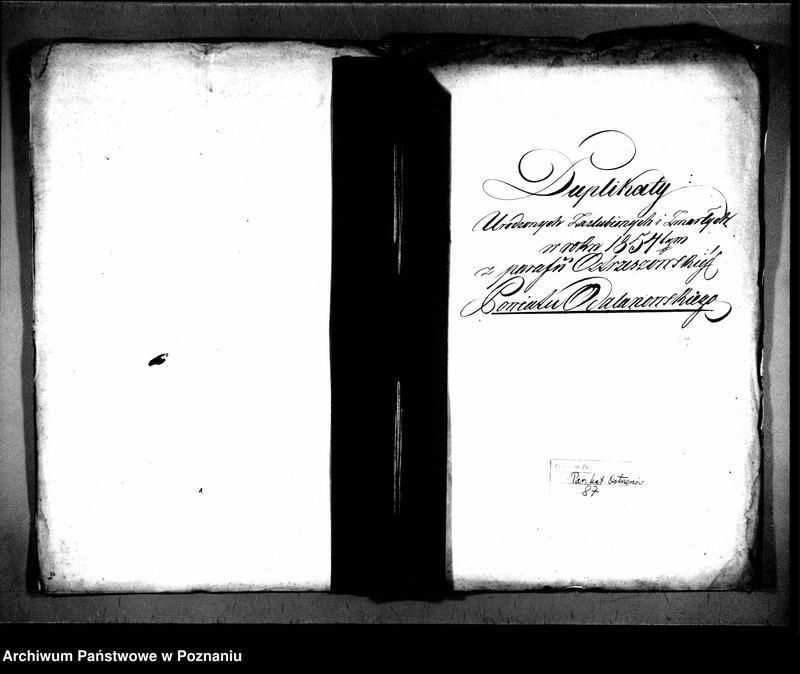 Duplikaty
Urodzonych Zaslubionych i Zmarłych
w roku 1857tym
z parafii Ostrzeszowskiéj
Powiatu Odalanowskiego
Par. kat. Ostrzeszów
87
Archiwum Państwowe w Poznaniu